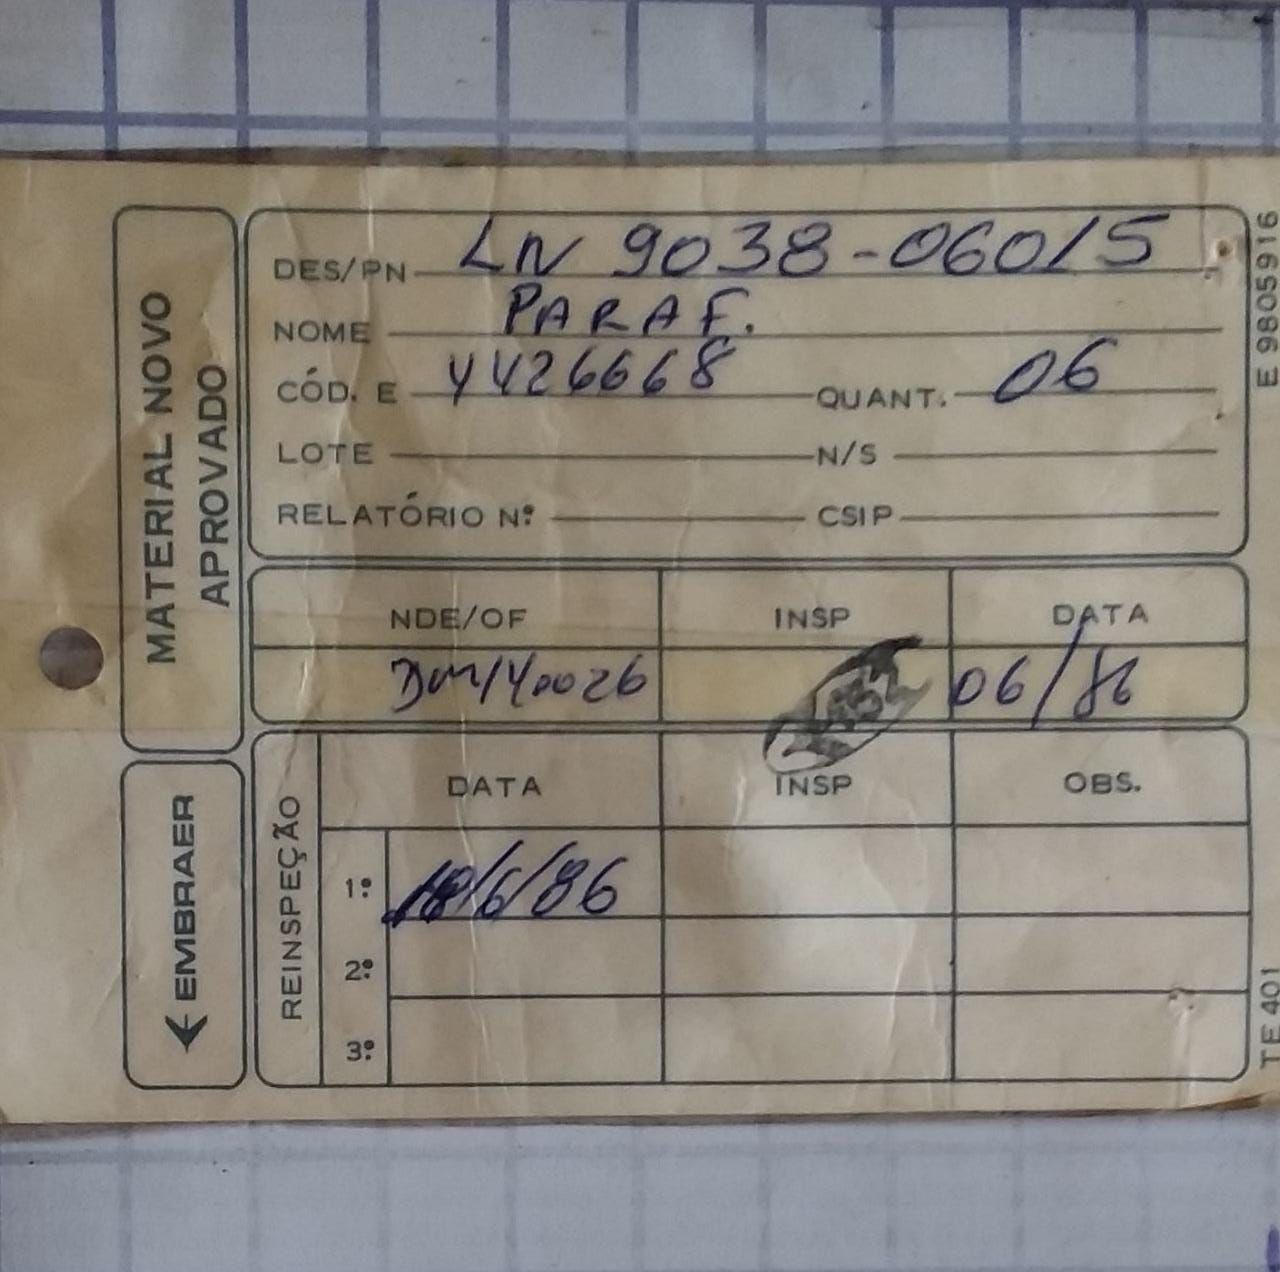 MATERIAL NOVO
APROVADO
EMBRAER
DES/PN LN 9038-06015
NOME PARAF.
CÓD. E 4426668 QUANT. 06
LOTE N/S
RELATÓRIO Nº CSIP
NDE/OF INSP DATA
06/86
REINSPEÇÃO
DATA INSP OBS.
1º 18/6/86
2º
3º
E 9805916
TE 401